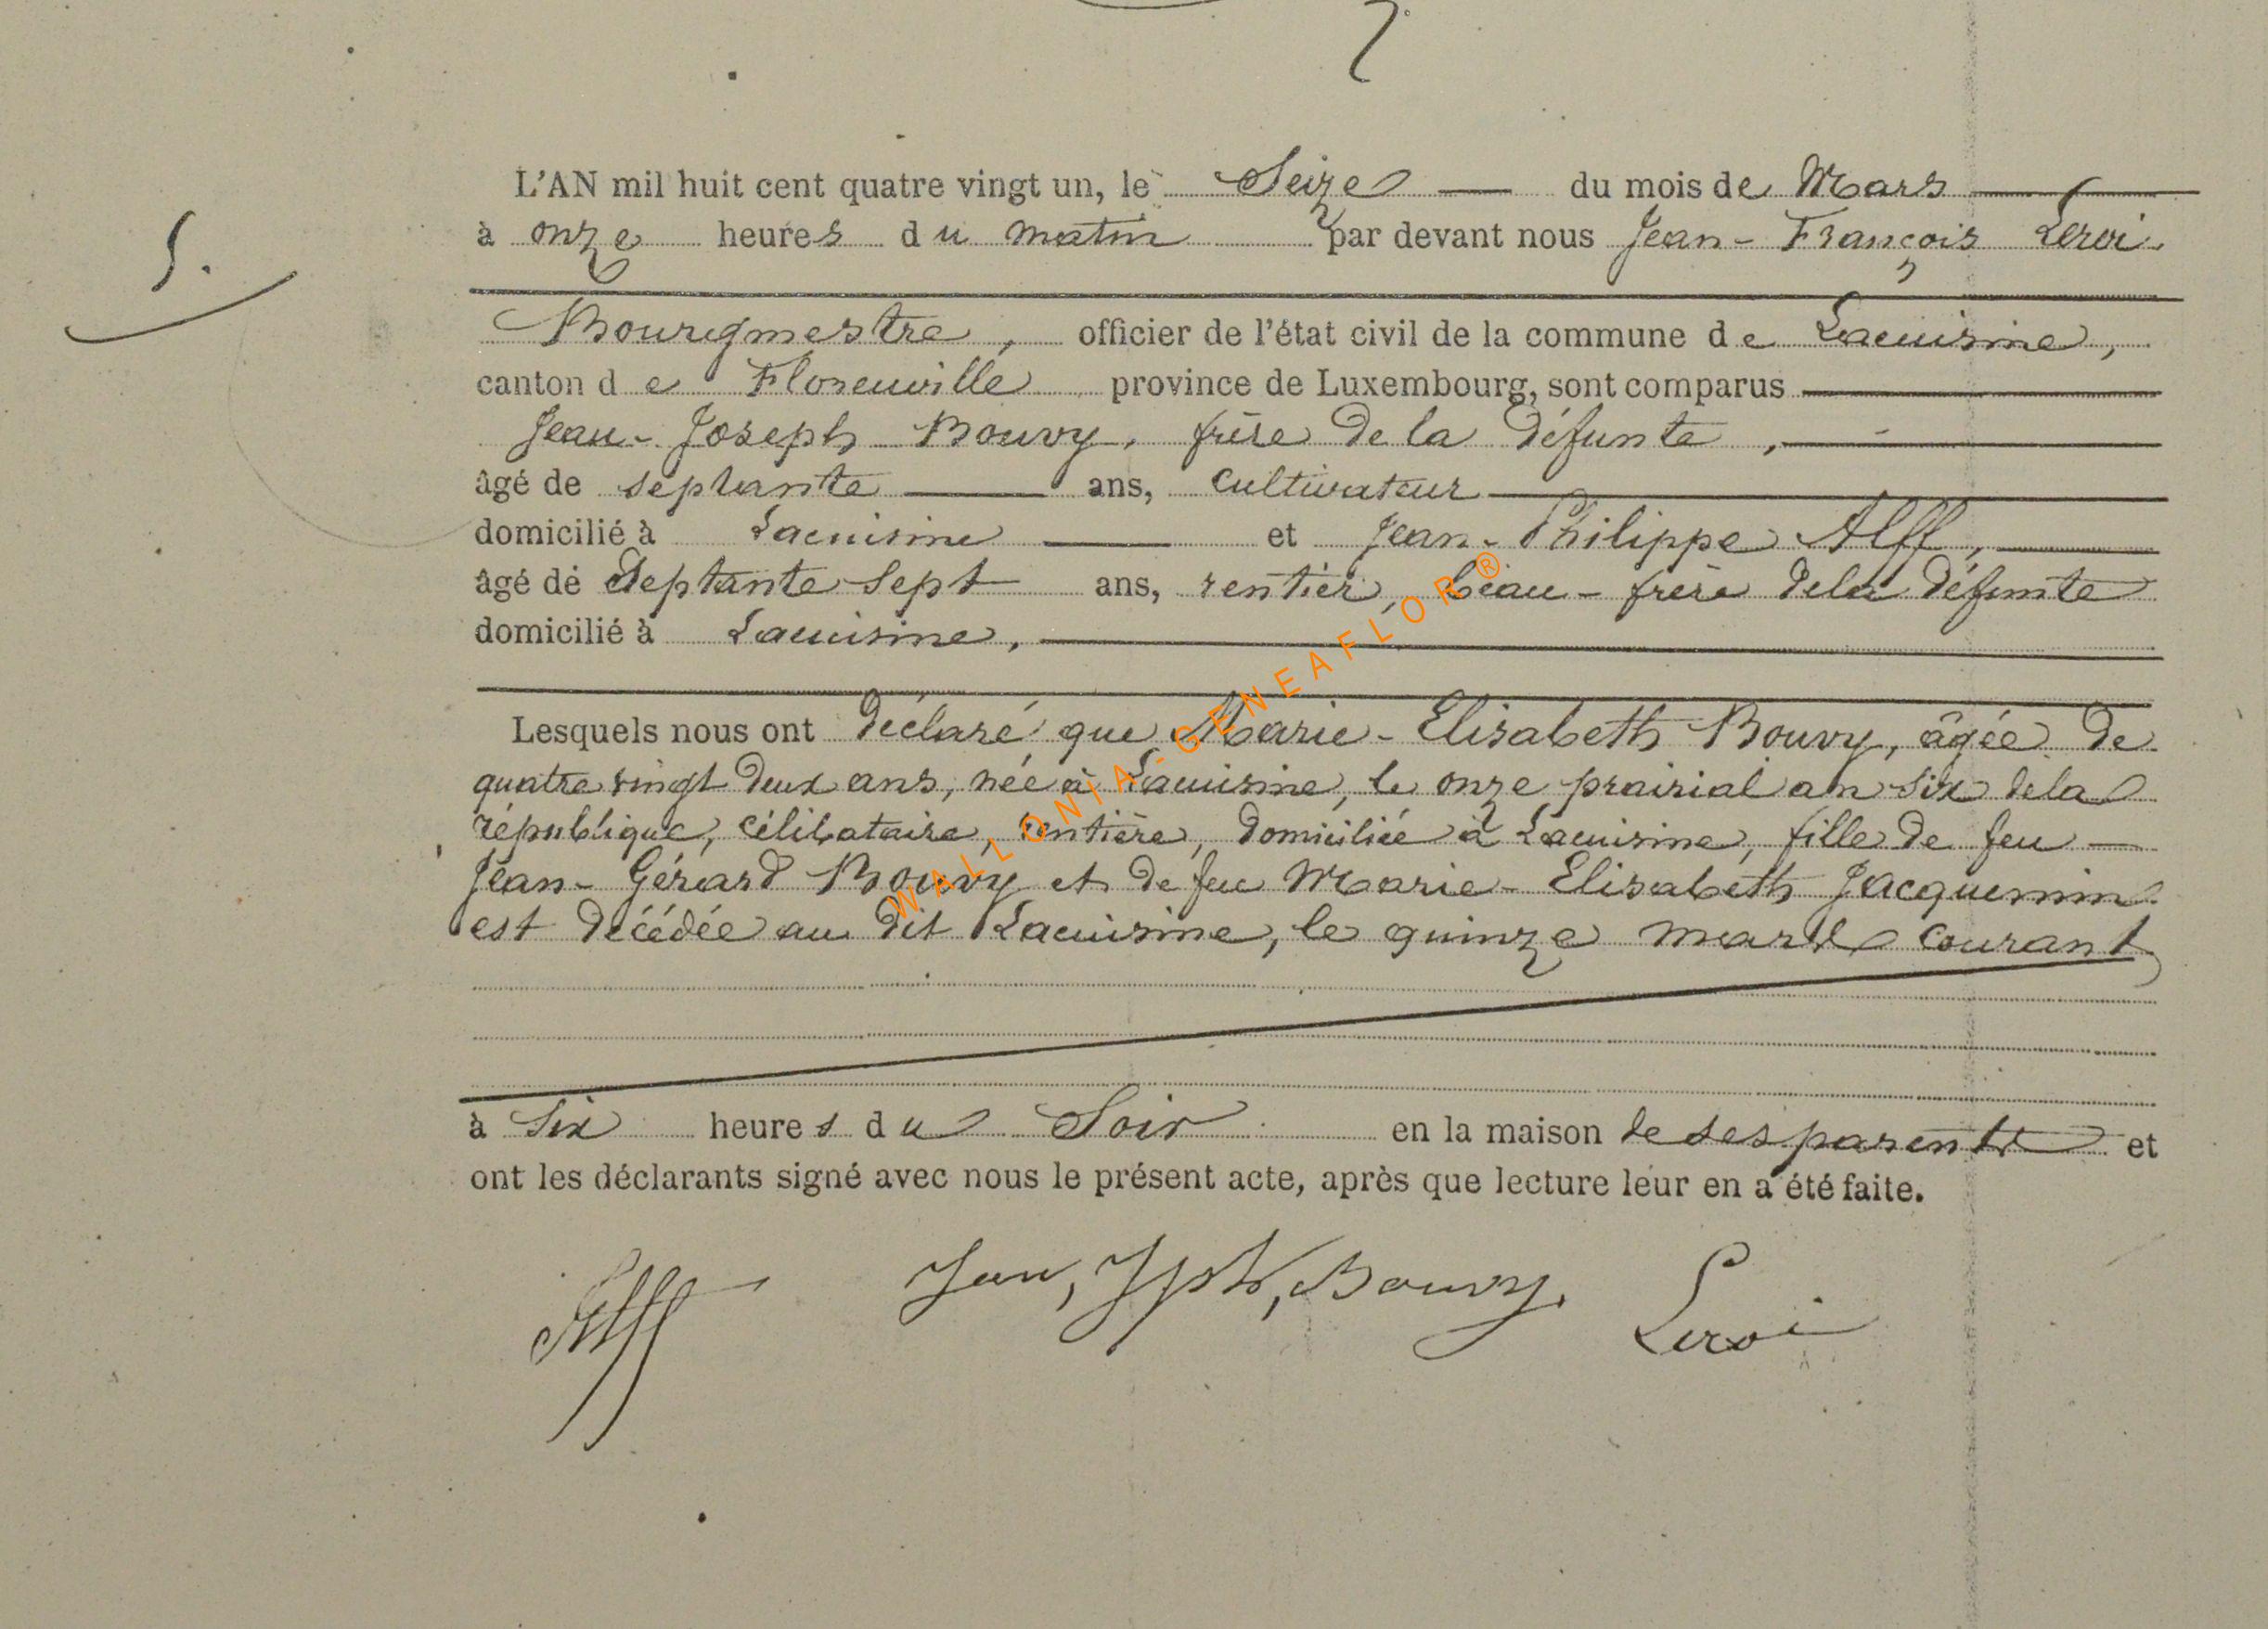 5.
L'AN mil huit cent quatre vingt un, le Seize du mois de Mars
à onze heures du matin par devant nous Jean-François Leroi.
Bourgmestre, officier de l'état civil de la commune de Lacuisine,
canton de Florenville province de Luxembourg, sont comparus
Jean-Joseph Bouvy, frère de la défunte,
âgé de septante ans, cultivateur
domicilié à Lacuisine et Jean-Philippe Alff,
âgé de Septante sept ans, rentier, beau-frère de la défunte
domicilié à Lacuisine,
Lesquels nous ont déclaré que Marie-Elisabeth Bouvy, âgée de
quatre vingt deux ans, née à Lacuisine, le onze prairial an six de la
république, célibataire, rentière, domiciliée à Lacuisine, fille de feu
Jean-Gérard Bouvy et de feu Marie-Elisabeth Jacquemin
est décédée au dit Lacuisine, le quinze mars courant
à six heures du Soir en la maison de ses parents et
ont les déclarants signé avec nous le présent acte, après que lecture leur en a été faite.
Alff Jean, Jph, Bouvy. Leroi
WALLONIA-GENEAFLOR®